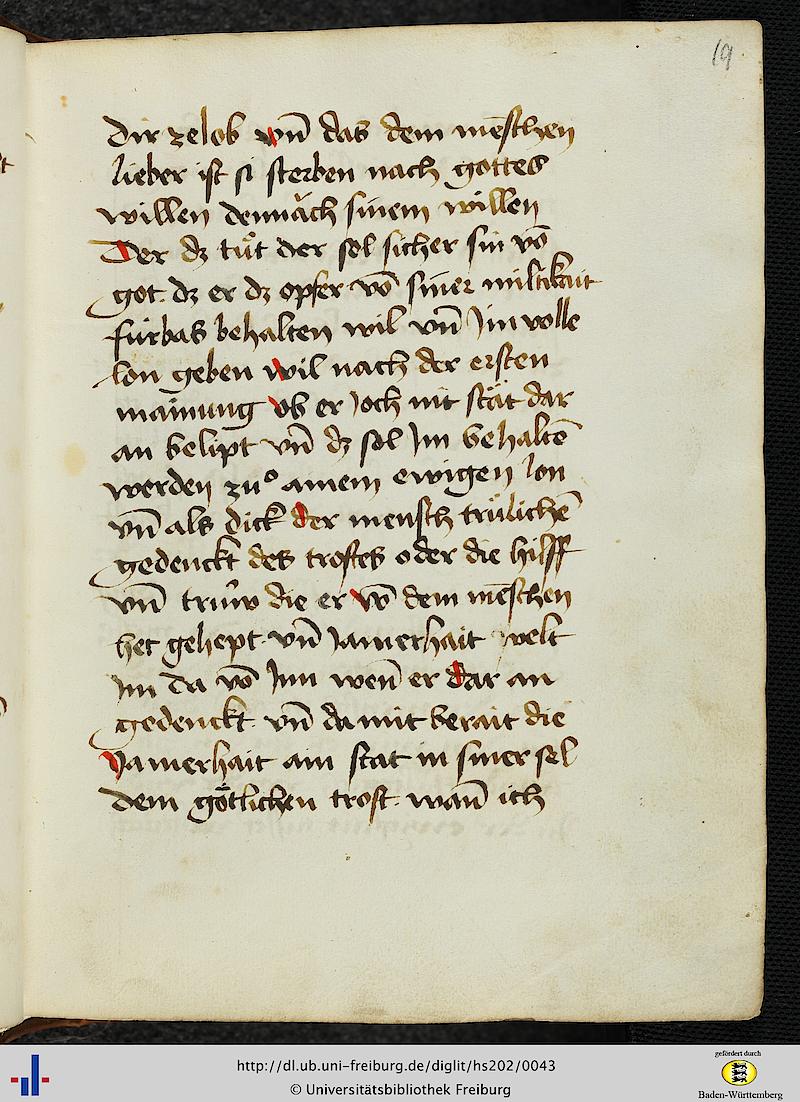 19
dir zelob vn̄ das dem mēschen
lieber ist si sterben nach gottes
willen dennäch sinem willen
Der dz tůt der sol sicher sin vō
got. dz er dz opfer vō siner miltikait
fürbas behalten wil vn̄ Jm volle
lon geben wil nach der ersten
mainung ob er joch nit stät dar
an belipt vn̄ dz sol Jm behaltē
werden zuͦ ainem ewigen lon
vn̄ als dick der mensch trülichē
gedenckt des trostes oder die hilff
vn̄ trüw die er vō dem mēschen
het gehept vn̄ Jamerhait welt
Jm da vō Jnn wen̄ er dar an
gedenckt vn̄ da mit berait die
Jamerhait ain stat in siner sel
dem götlichen trost. wan̄ ich
http://dl.ub.uni-freiburg.de/diglit/hs202/0043
© Universitätsbibliothek Freiburg
gefördert durch
Baden-Württemberg